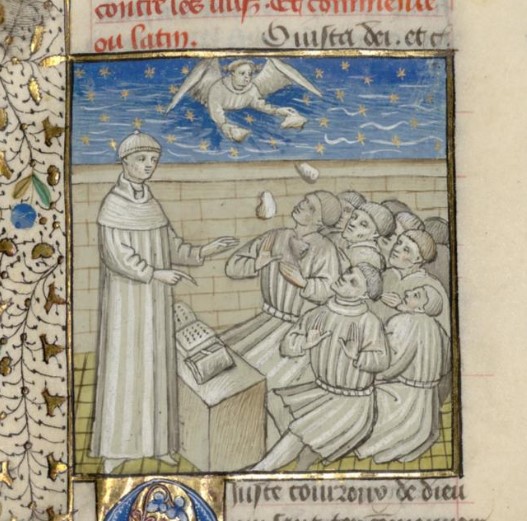 contre les iuifz. Et commence
ou latin. O iusta dei. et c̄.
Iuste courroux de dieu